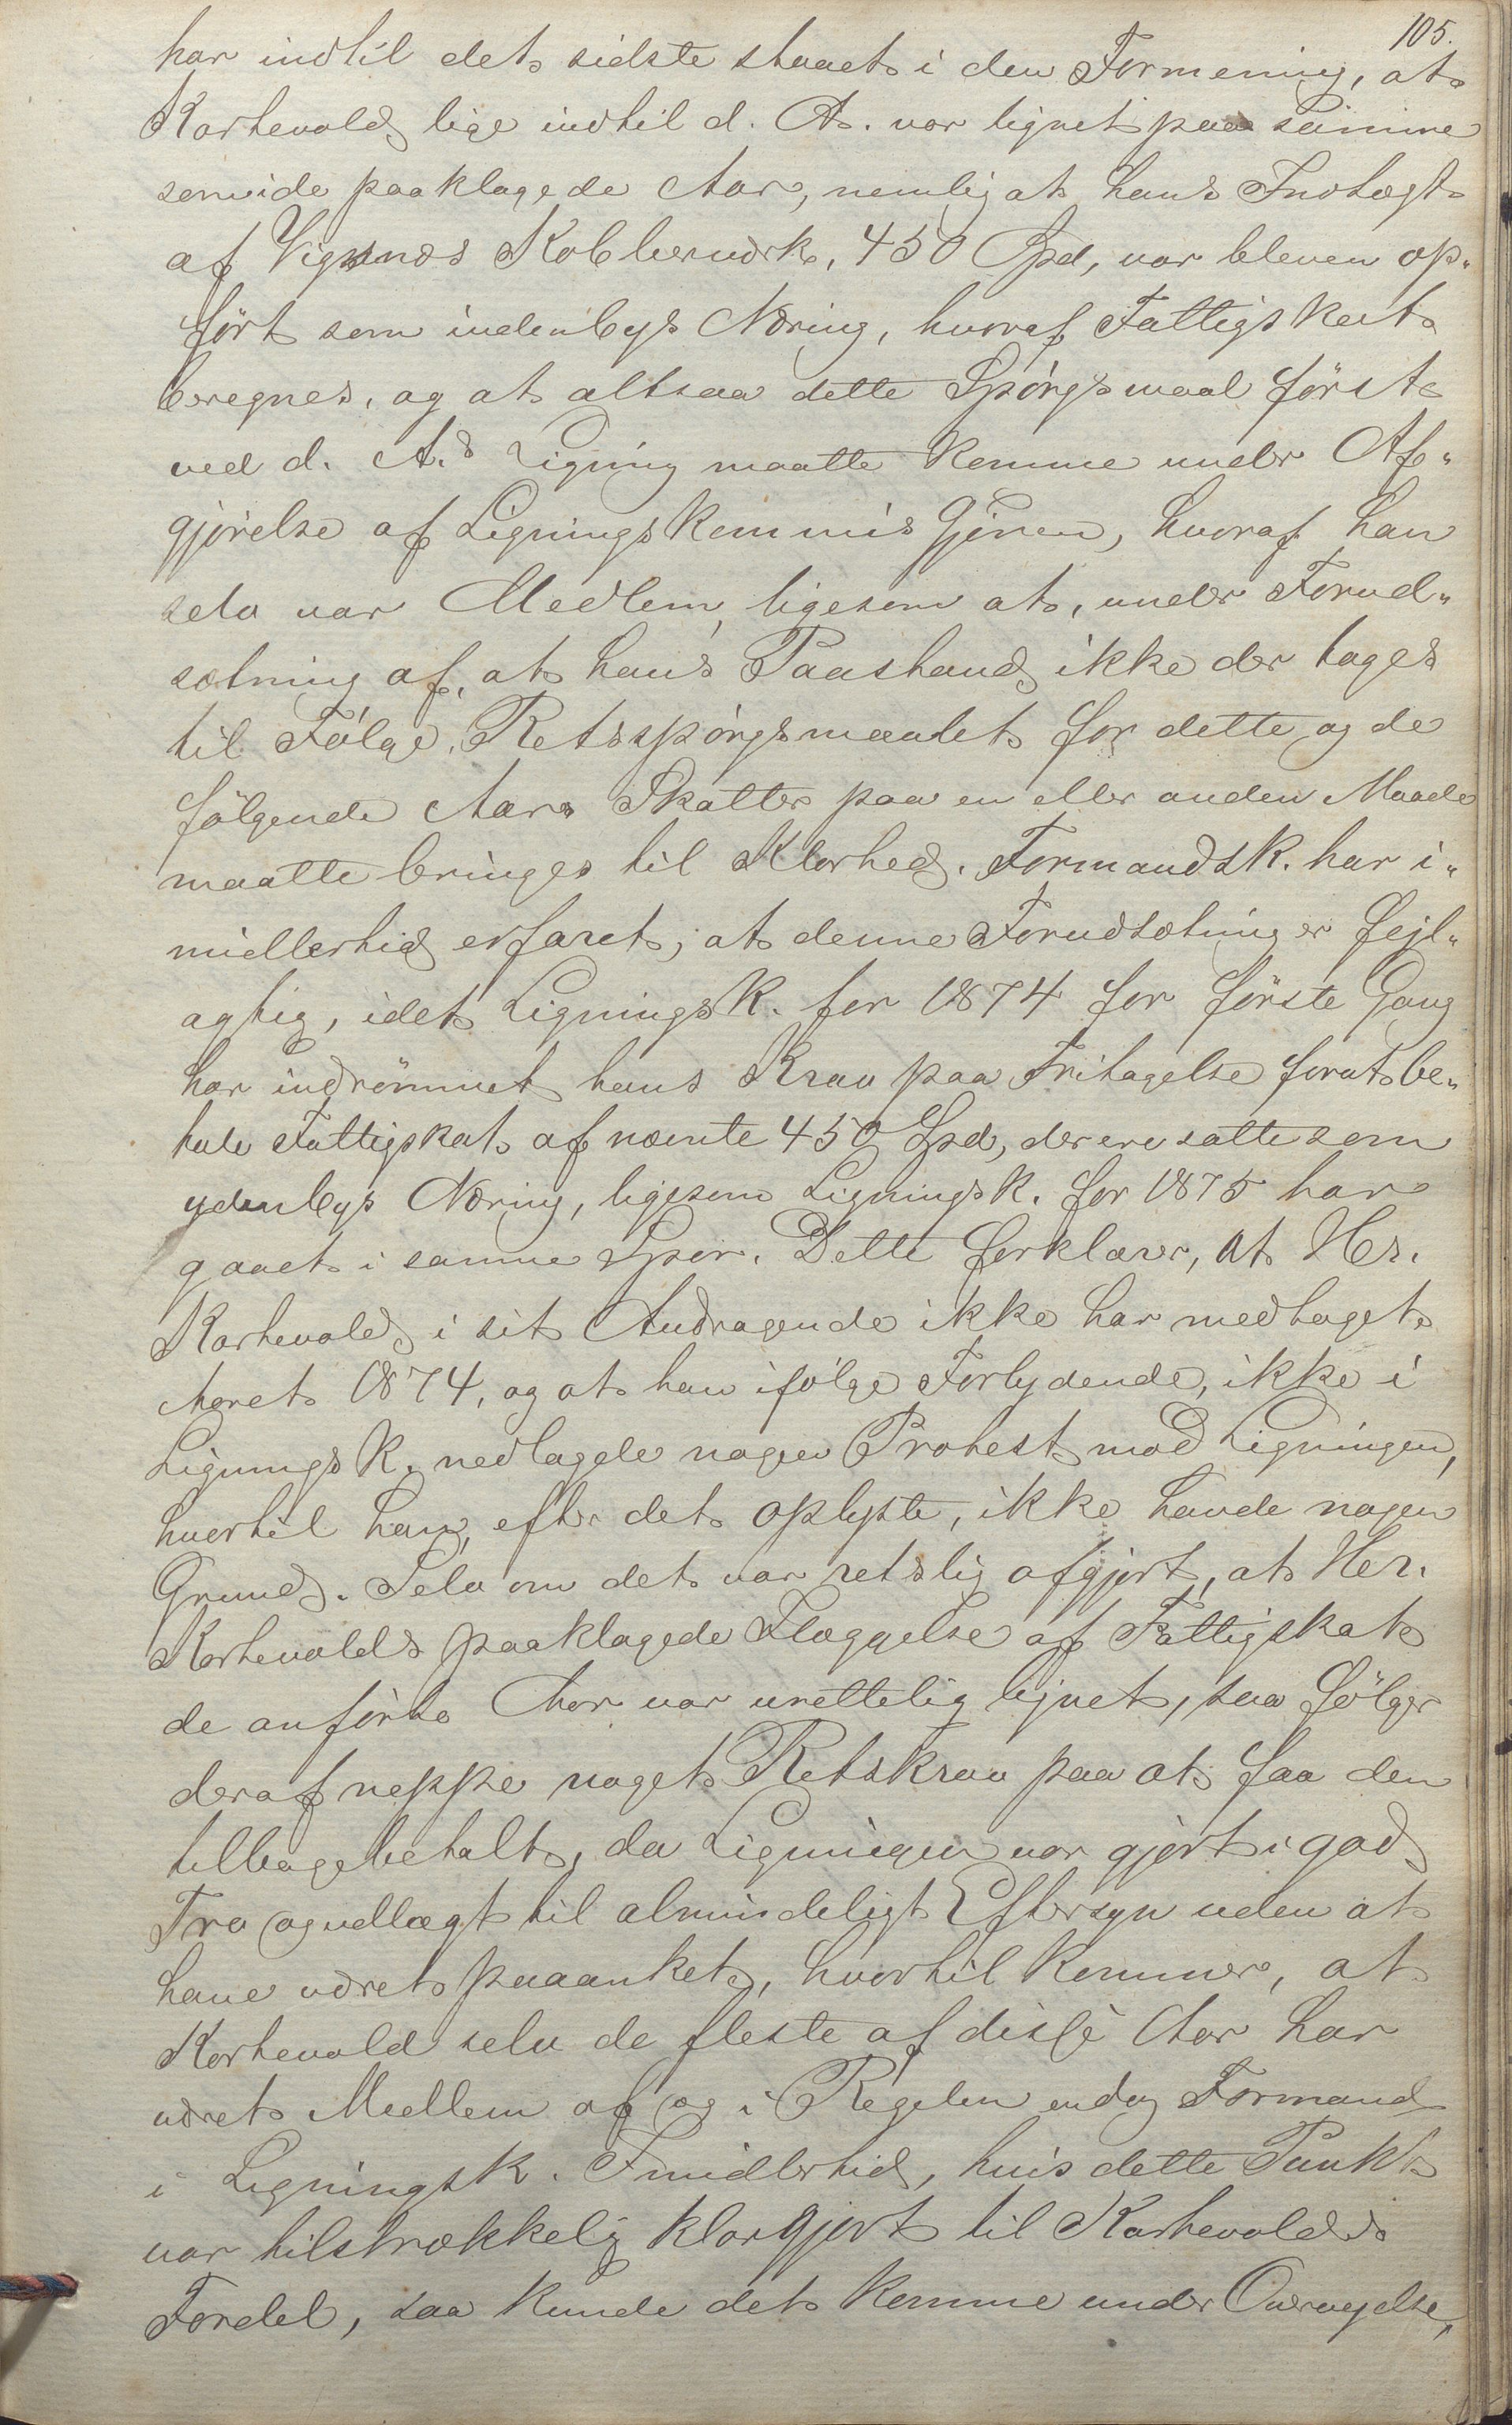 105.
har indtil det sidste staaet i den Formening, at
Kortevold lige indtil d. A. var lignet paa samme
som i de paaklagede Aar, nemlig at hans Indtægt
af Vigsnæs Kobberværk, 450 Spd, var bleven op„
ført som indenbys Næring, hvoraf Fattigskat
beregnes, og at altsaa dette Spörgsmaal først
ved d. A.s Ligning maatte komme under Af„
gjörelse af Ligningskommisjonen, hvoraf han
selv var Medlem, ligesom at, under Forud„
sætning af, at hans Paastand ikke der toges
til Følge, Retsspörgsmaalet for dette og de
følgende Aars Skatter paa en eller anden Maade
maatte bringes til Klarhed. Formandsk. har i„
midlertid erfaret, at denne Forudsætning er fejl„
agtig, idet Ligningsk. for 1874 for förste Gang
har indrömmet hans Krav paa Fritagelse for at be„
tale Fattigskat af nævnte 450 Spd, der ere satte som
udenbys Næring, ligesom Ligningsk. for 1875 har
gaaet i samme Spor. Dette forklarer, at Hr.
Kortevold i sit Andragende ikke har medtaget
Aaret 1874, og at han ifølge Forlydende, ikke i
Ligningsk. nedlagde nogen Protest mod Ligningen,
hvortil han, efter det oplyste, ikke havde nogen
Grund. Selv om det var retslig afgjort, at Hr.
Kortevolds paaklagede Ilæggelse af Fattigskat
de anførte Aar var urettelig lignet, saa følger
deraf neppe noget Retskrav paa at faa den
tilbagebetalt, da Ligningen var gjort i god
Tro og udlagt til almindeligt Eftersyn uden at
have været paaanket, hvortil kommer, at
Kortevold selv de fleste af disse Aar har
været Medlem af og i Regelen endog Formand
i Ligningsk. Imidlertid, hvis dette Punkt
var tilstrækkelig klargjort til Kortevolds
Fordel, saa kunde det komme under Overvejelse,